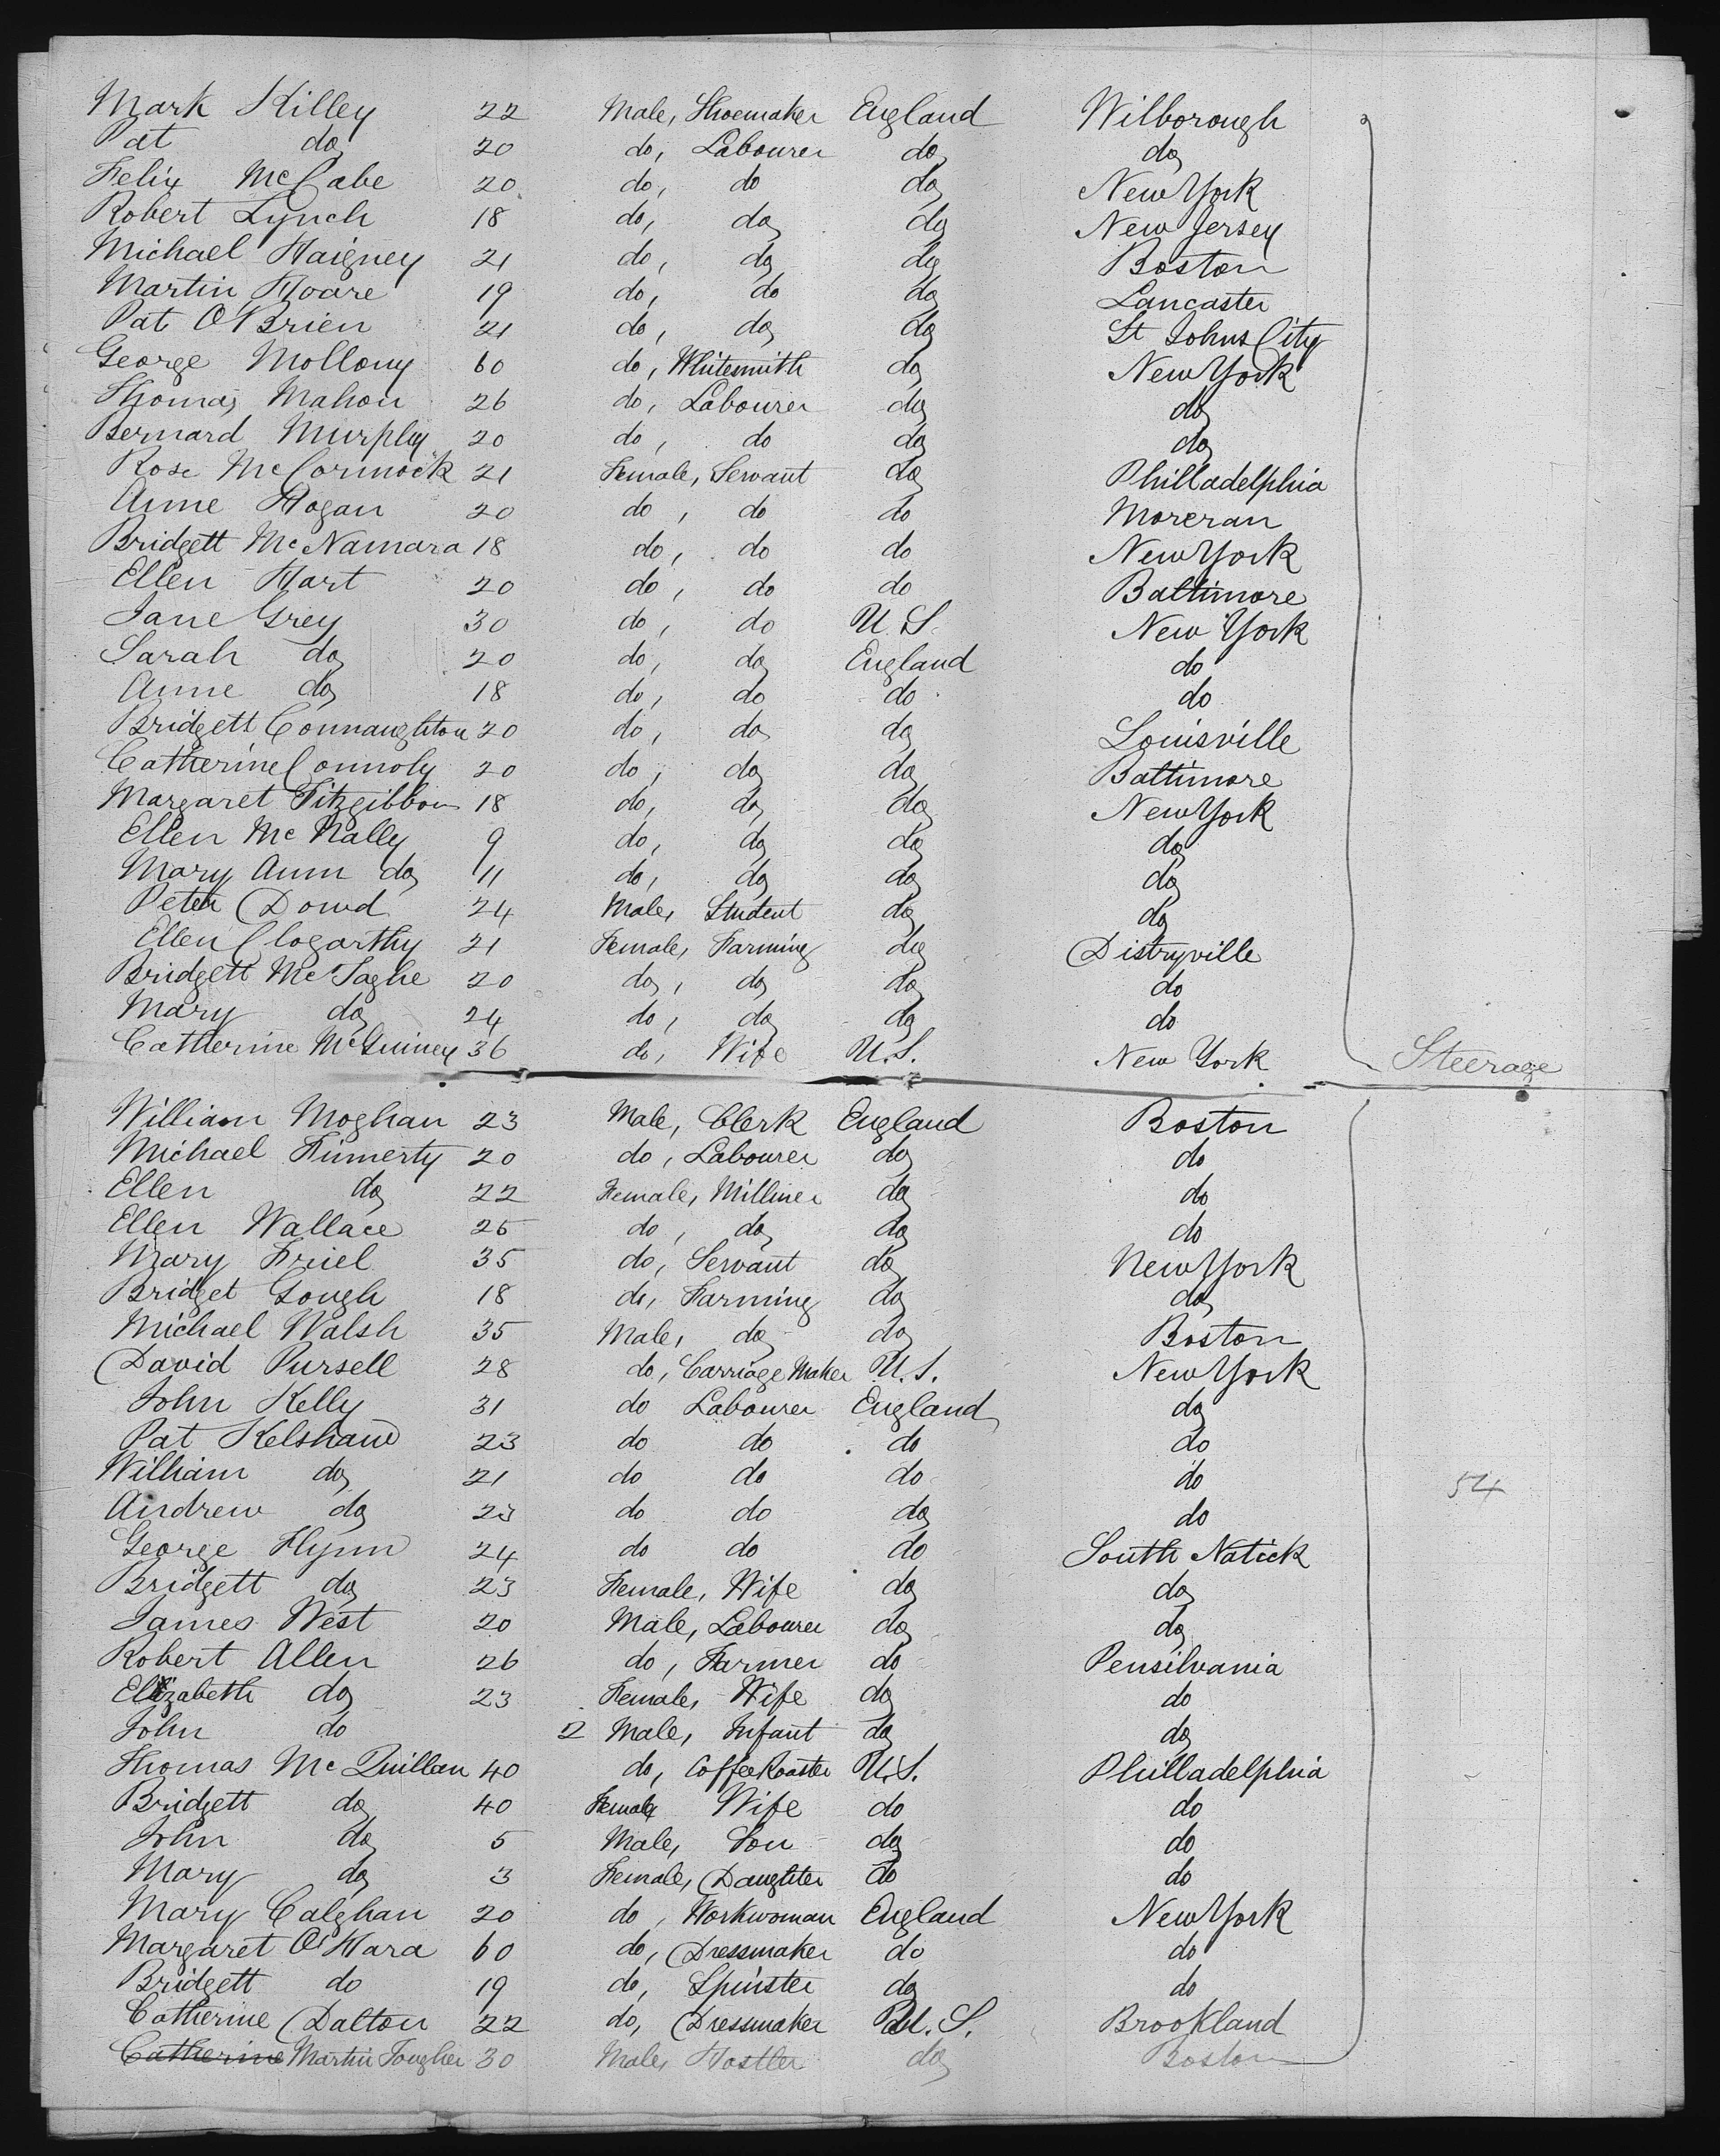 Mark Killey 22 Male, Shoemaker England Wilborough
Pat do 20 do, Labourer do do
Felix McCabe 20 do, do do New York
Robert Lynch 18 do, do do New Jersey
Michael Haigney 21 do, do do Boston
Martin Hoare 19 do, do do Lancaster
Pat O'Brien 21 do, do do St Johns City
George Mollony 60 do, Whitesmith do New York
Thomas Mahon 26 do, Labourer do do
Bernard Murphy 20 do, do do do
Rose McCormock 21 Female, Servant do Philladelphia
Anne Hogan 20 do, do do Moreran
Bridgett McNamara 18 do, do do New York
Ellen Hart 20 do, do do Baltimore
Jane Grey 30 do, do U.S. New York
Sarah do 20 do, do England do
Anne do 18 do, do do do
Bridgett Connaughton 20 do, do do Louisville
Catherine Connoly 20 do, do do Baltimore
Margaret Fitzgibbon 18 do, do do New York
Ellen McNally 9 do, do do do
Mary Ann do 11 do, do do do
Peter Dowd 24 Male, Student do do
Ellen Clogarthy 21 Female, Farming do Distryville
Bridgett McTaghe 20 do, do do do
Mary do 24 do, do do do
Catherine McGuiney 36 do, Wife U.S. New York Steerage
William Moghan 23 Male, Clerk England Boston
Michael Finnerty 20 do, Labourer do do
Ellen do 22 Female, Milliner do do
Ellen Wallace 25 do, do do do
Mary Friel 35 do, Servant do New York
Bridget Gough 18 do, Farming do do
Michael Walsh 35 Male, do do Boston
David Pursell 28 do, Carriage Maker U.S. New York
John Kelly 31 do Labourer England do
Pat Kelshaw 23 do do do do
William do 21 do do do do 54
Andrew do 23 do do do do
George Flynn 24 do do do South Natick
Bridgett do 23 Female, Wife do do
James West 20 Male, Labourer do do
Robert Allen 26 do, Farmer do Pensilvania
Elizabeth do 23 Female, Wife do do
John do 2 Male, Infant do do
Thomas McQuillan 40 do, Coffee Roaster U.S. Philladelphia
Bridgett do 40 Female Wife do do
John do 5 Male, Son do do
Mary do 3 Female, Daughter do do
Mary Calghan 20 do, Workwoman England New York
Margaret O'Hara 60 do, Dressmaker do do
Bridgett do 19 do, Spinster do do
Catherine Dalton 22 do, Dressmaker U.S. Brookland
Catherine Martin Tougher 30 Male, Hostler do Boston